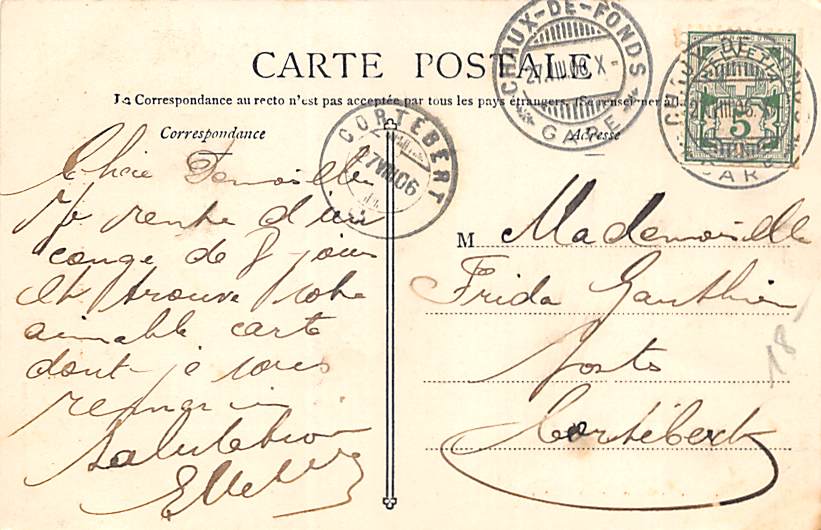 CARTE POSTALE
La Correspondance au recto n'est pas acceptée par tous les pays étrangers. (Se renseigner à la
Correspondance
Adresse
CHAUX-DE-FONDS
27.VIII.06.X
GARE
HELVETIA
5
CORTÉBERT
27 VIII 06
Chère Demoiselle
Je rentre d'un
congé de 8 jours
et trouve votre
aimable carte
dont je vous
remercie
Salutation
M Mademoiselle
Frida Gauthier
Poste
Cortébert
18